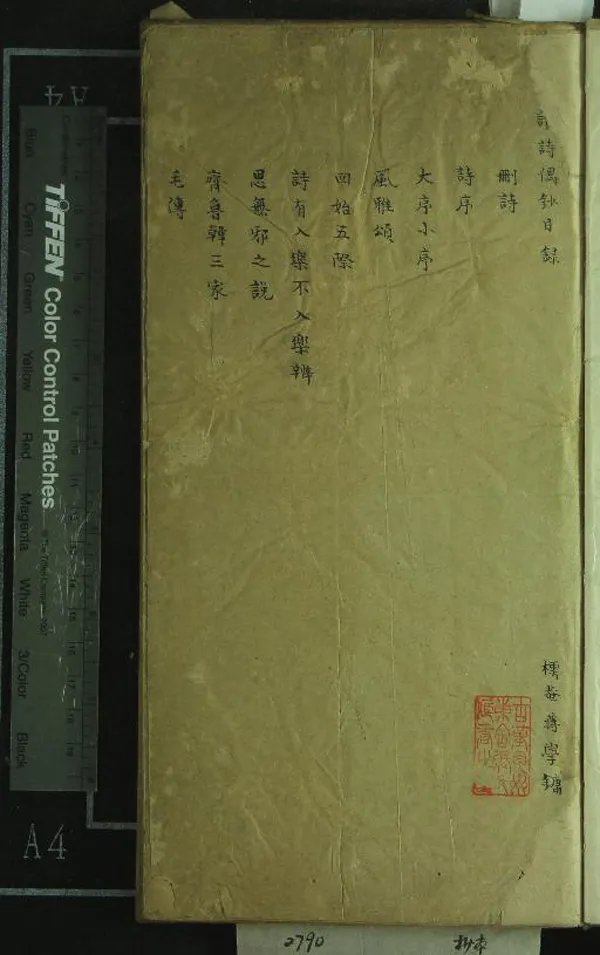 詩偶鈔目録
樗菴蔣學鏞
刪詩
詩序
大序小序
風雅頌
四始五際
詩有入樂不入樂辨
思無邪之說
齊魯韓三家
毛傳
TIFFEN Color Control Patches
© The Tiffen Company, 2007
Blue Cyan Green Yellow Red Magenta White 3/Color Black
A4
A4
2790
抄本